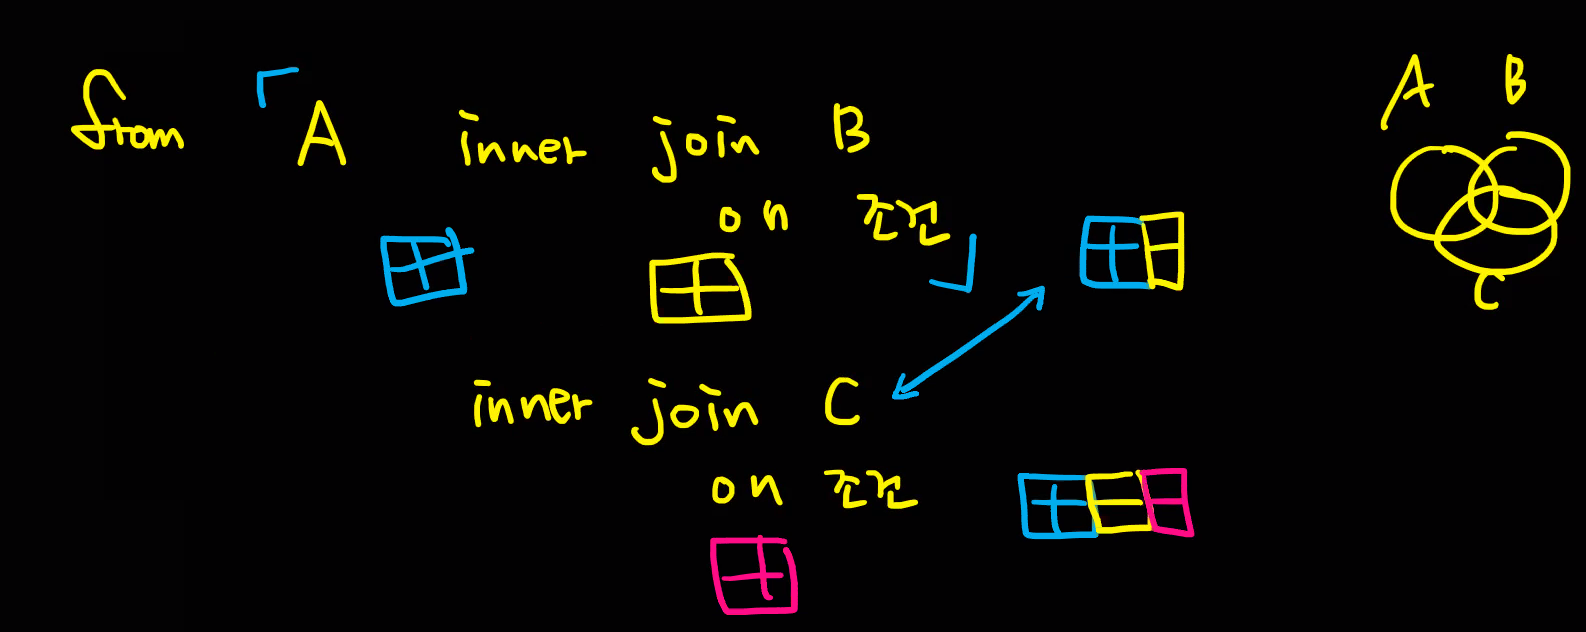 A B
from A inner join B
on 조건
C
inner join C
on 조건